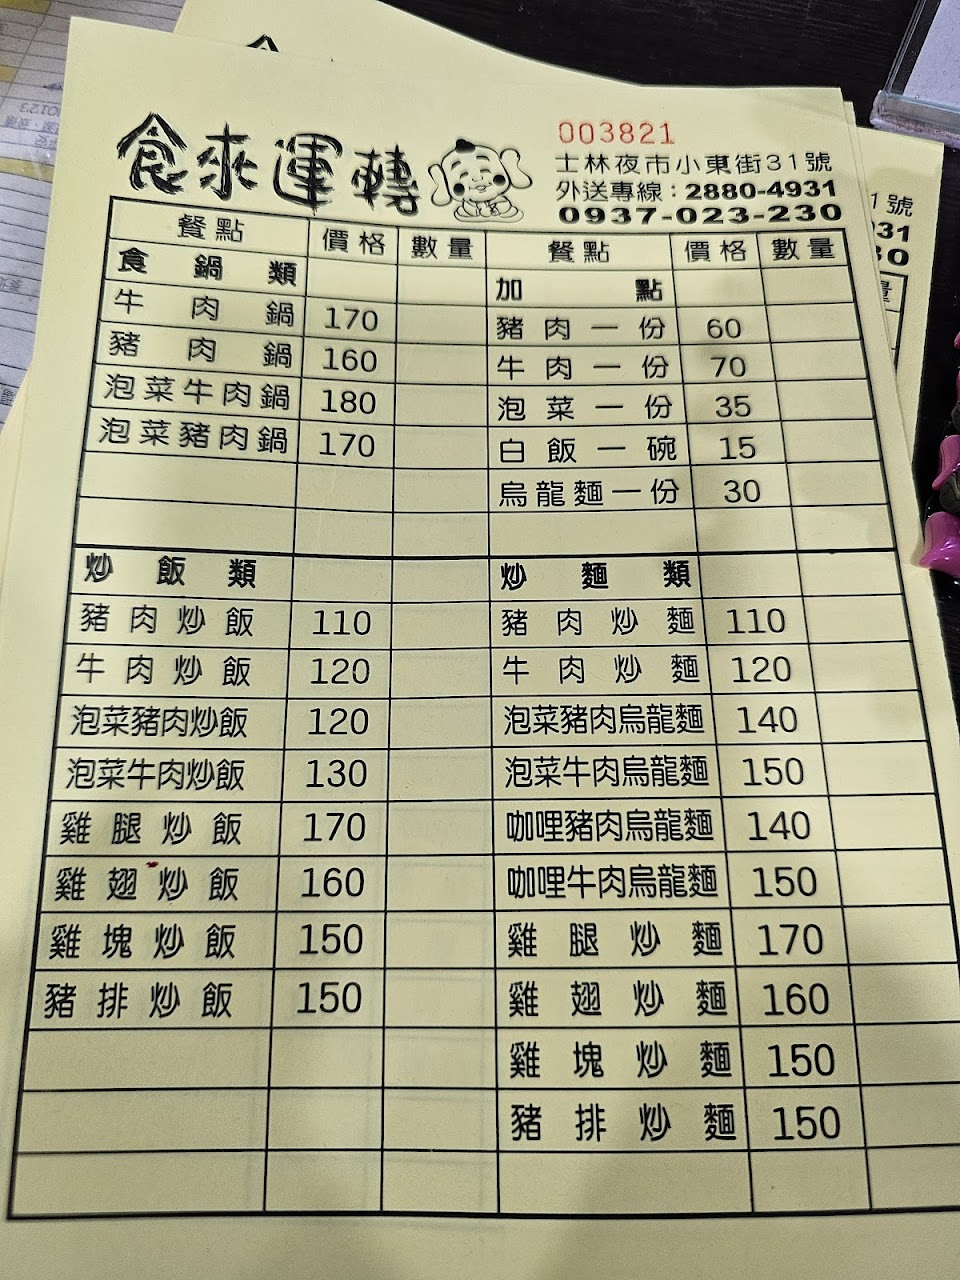 食來運轉
003821
士林夜市小東街31號
外送專線：2880-4931
0937-023-230
餐點 價格 數量 餐點 價格 數量
食鍋類
牛肉鍋 170
豬肉鍋 160
泡菜牛肉鍋 180
泡菜豬肉鍋 170
加點
豬肉一份 60
牛肉一份 70
泡菜一份 35
白飯一碗 15
烏龍麵一份 30
炒飯類
豬肉炒飯 110
牛肉炒飯 120
泡菜豬肉炒飯 120
泡菜牛肉炒飯 130
雞腿炒飯 170
雞翅炒飯 160
雞塊炒飯 150
豬排炒飯 150
炒麵類
豬肉炒麵 110
牛肉炒麵 120
泡菜豬肉烏龍麵 140
泡菜牛肉烏龍麵 150
咖哩豬肉烏龍麵 140
咖哩牛肉烏龍麵 150
雞腿炒麵 170
雞翅炒麵 160
雞塊炒麵 150
豬排炒麵 150
1號
931
30
量